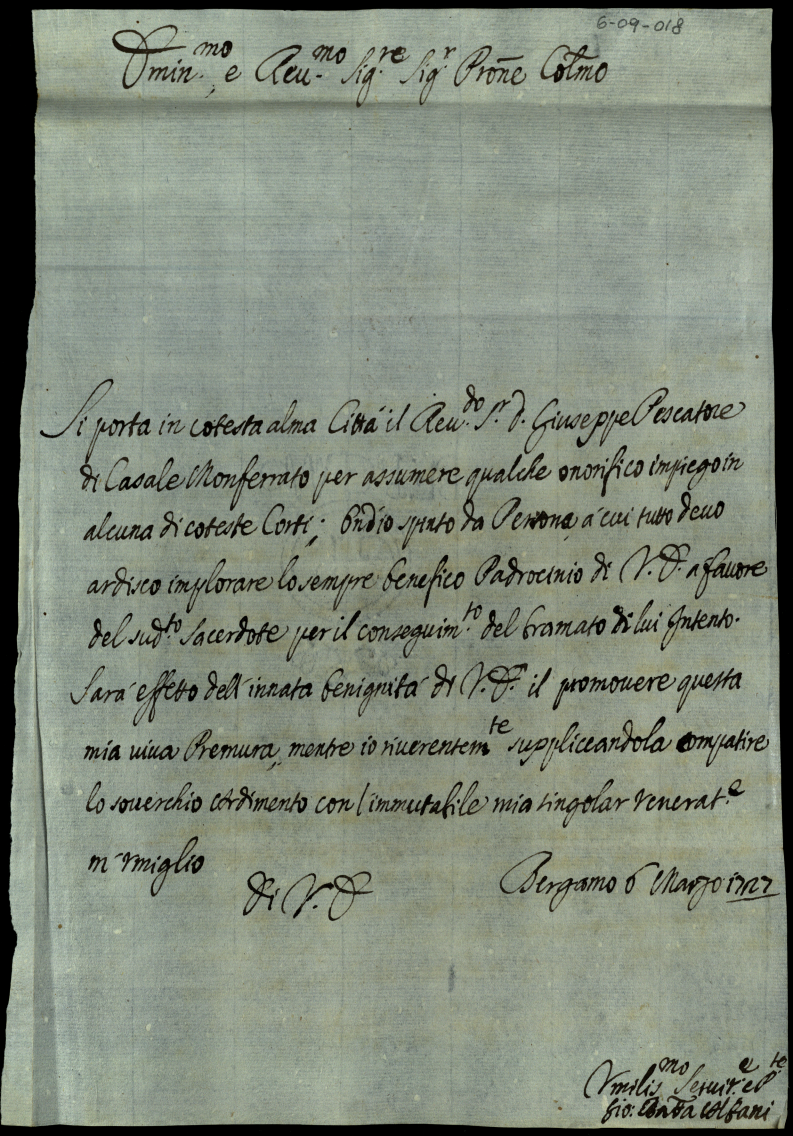 6-09-018
Emin.mo, e Reu.mo Sig.re Sig.r Prone Colmo
Si porta in cotesta alma Città il Reu.do S.r D. Giuseppe Pescatore
di Casale Monferrato per assumere qualche onorifico impiego in
alcuna di coteste Corti; Ond'io spinto da Persona, à cui tutto deuo
ardisco implorare lo sempre benefico Padrocinio di V.E. a fauore
del sud.to Sacerdote per il conseguim.to del bramato di lui Intento.
Sarà effetto dell'innata benignità di V.E. il promouere questa
mia viua Premura, mentre io riuerentem.te suppliccandola compatire
lo souerchio Ardimento con l'immutabile mia singolar venerat.e
m'vmiglio
Di V.E.
Bergamo 6 Marzo 1727
Vmilis.mo Seruit.e e
Gio: Albani